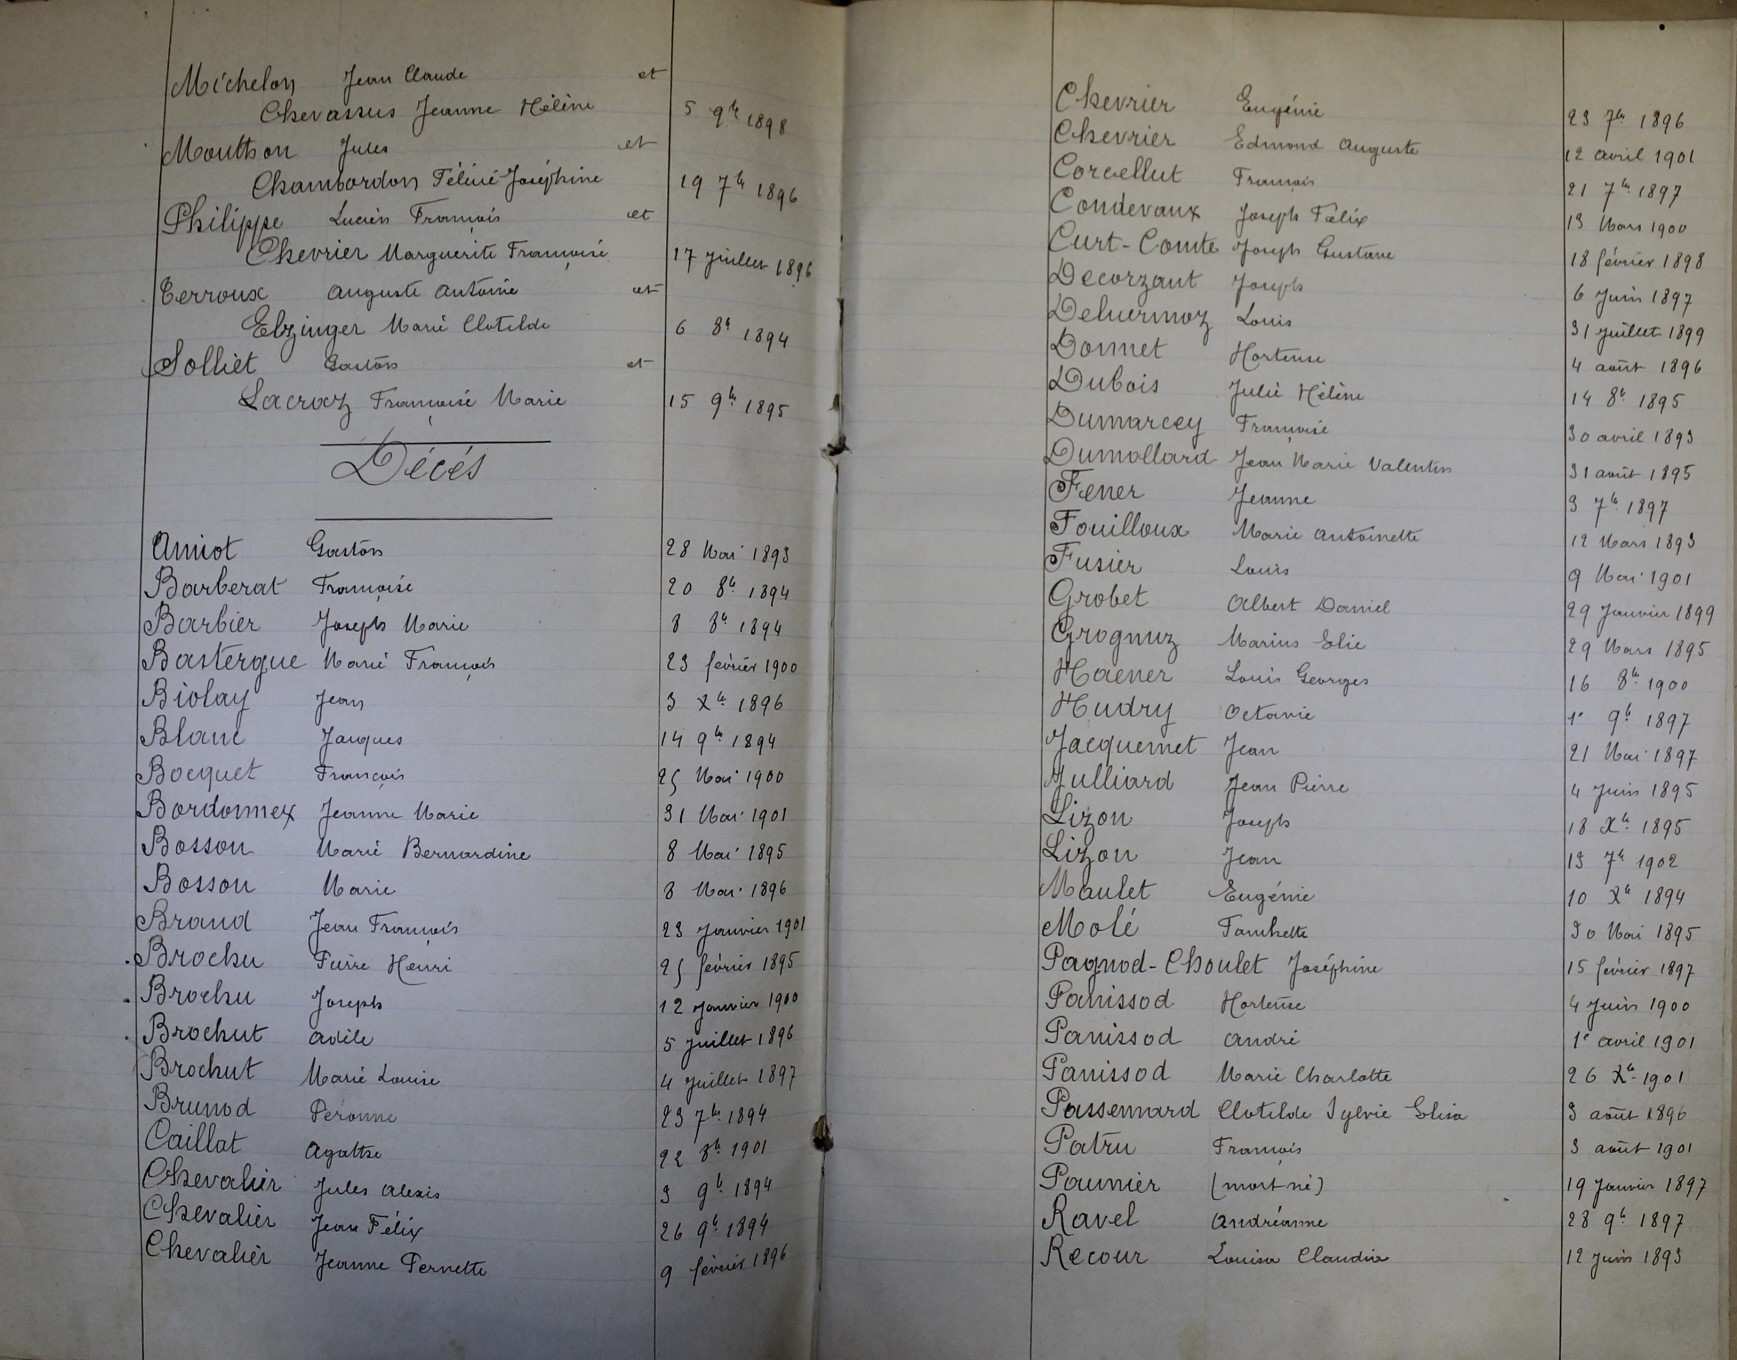 Michelon Jean Claude et
Chevassus Jeanne Hélène 5 9bre 1898
Mouthon Jules et
Chambardon Félicie Joséphine 19 7bre 1896
Philippe Lucien François et
Chevrier Marguerite Françoise 17 juillet 1896
Terroux Auguste Antoine et
Elzinger Marie Clotilde 6 8bre 1894
Solliet Gaston et
Lacroix Françoise Marie 15 9bre 1895
Décés
Amiot Gaston 28 Mai 1893
Barberat Françoise 20 8bre 1894
Barbier Joseph Marie 8 8bre 1894
Bastergue Marie François 23 février 1900
Biolay Jean 3 Xbre 1896
Blanc Jacques 14 9bre 1894
Bocquet François 25 Mai 1900
Bordonnex Jeanne Marie 31 Mai 1901
Bosson Marie Bernardine 8 Mai 1895
Bosson Marie 8 Mai 1896
Braud Jean François 23 Janvier 1901
Brochu Pierre Henri 25 février 1895
Brochu Joseph 12 Janvier 1900
Brochut Adèle 5 Juillet 1896
Brochut Marie Louise 4 Juillet 1897
Brunod Péronne 23 7bre 1894
Caillat Agathe 22 8bre 1901
Chevalier Jules Alexis 3 9bre 1894
Chevalier Jean Félix 26 9bre 1894
Chevalier Jeanne Pernette 9 février 1896
Chevrier Eugénie 23 7bre 1896
Chevrier Edmond Auguste 12 avril 1901
Corcellut François 21 7bre 1897
Coudevaux Joseph Félix 13 Mars 1900
Curt-Comte Joseph Gustave 18 février 1898
Decorzant Joseph 6 Juin 1897
Deluermoz Louis 31 juillet 1899
Donnet Hortense 4 août 1896
Dubois Julie Hélène 14 8bre 1895
Dumarcey Françoise 30 avril 1893
Dumollard Jean Marie Valentin 31 août 1895
Fener Jeanne 3 7bre 1897
Fouilloux Marie Antoinette 12 Mars 1893
Fusier Louis 9 Mai 1901
Grobet Albert Daniel 29 Janvier 1899
Grognuz Marius Elie 29 Mars 1895
Haener Louis Georges 16 8bre 1900
Hudry Octavie 1er 9bre 1897
Jacquemet Jean 21 Mai 1897
Julliard Jean Pierre 4 Juin 1895
Lizon Joseph 18 Xbre 1895
Lizon Jean 13 7bre 1902
Maulet Eugénie 10 Xbre 1894
Molé Fanchette 30 Mai 1895
Pagnod-Choulet Joséphine 15 février 1897
Panissod Hortense 4 Juin 1900
Panissod André 1er avril 1901
Panissod Marie Charlotte 26 Xbre 1901
Passennard Clotilde Sylvie Elisa 3 août 1896
Patru François 3 août 1901
Paunier (mort né) 19 Janvier 1897
Ravel Andréanne 28 9bre 1897
Recour Louisa Claudia 12 Juin 1893